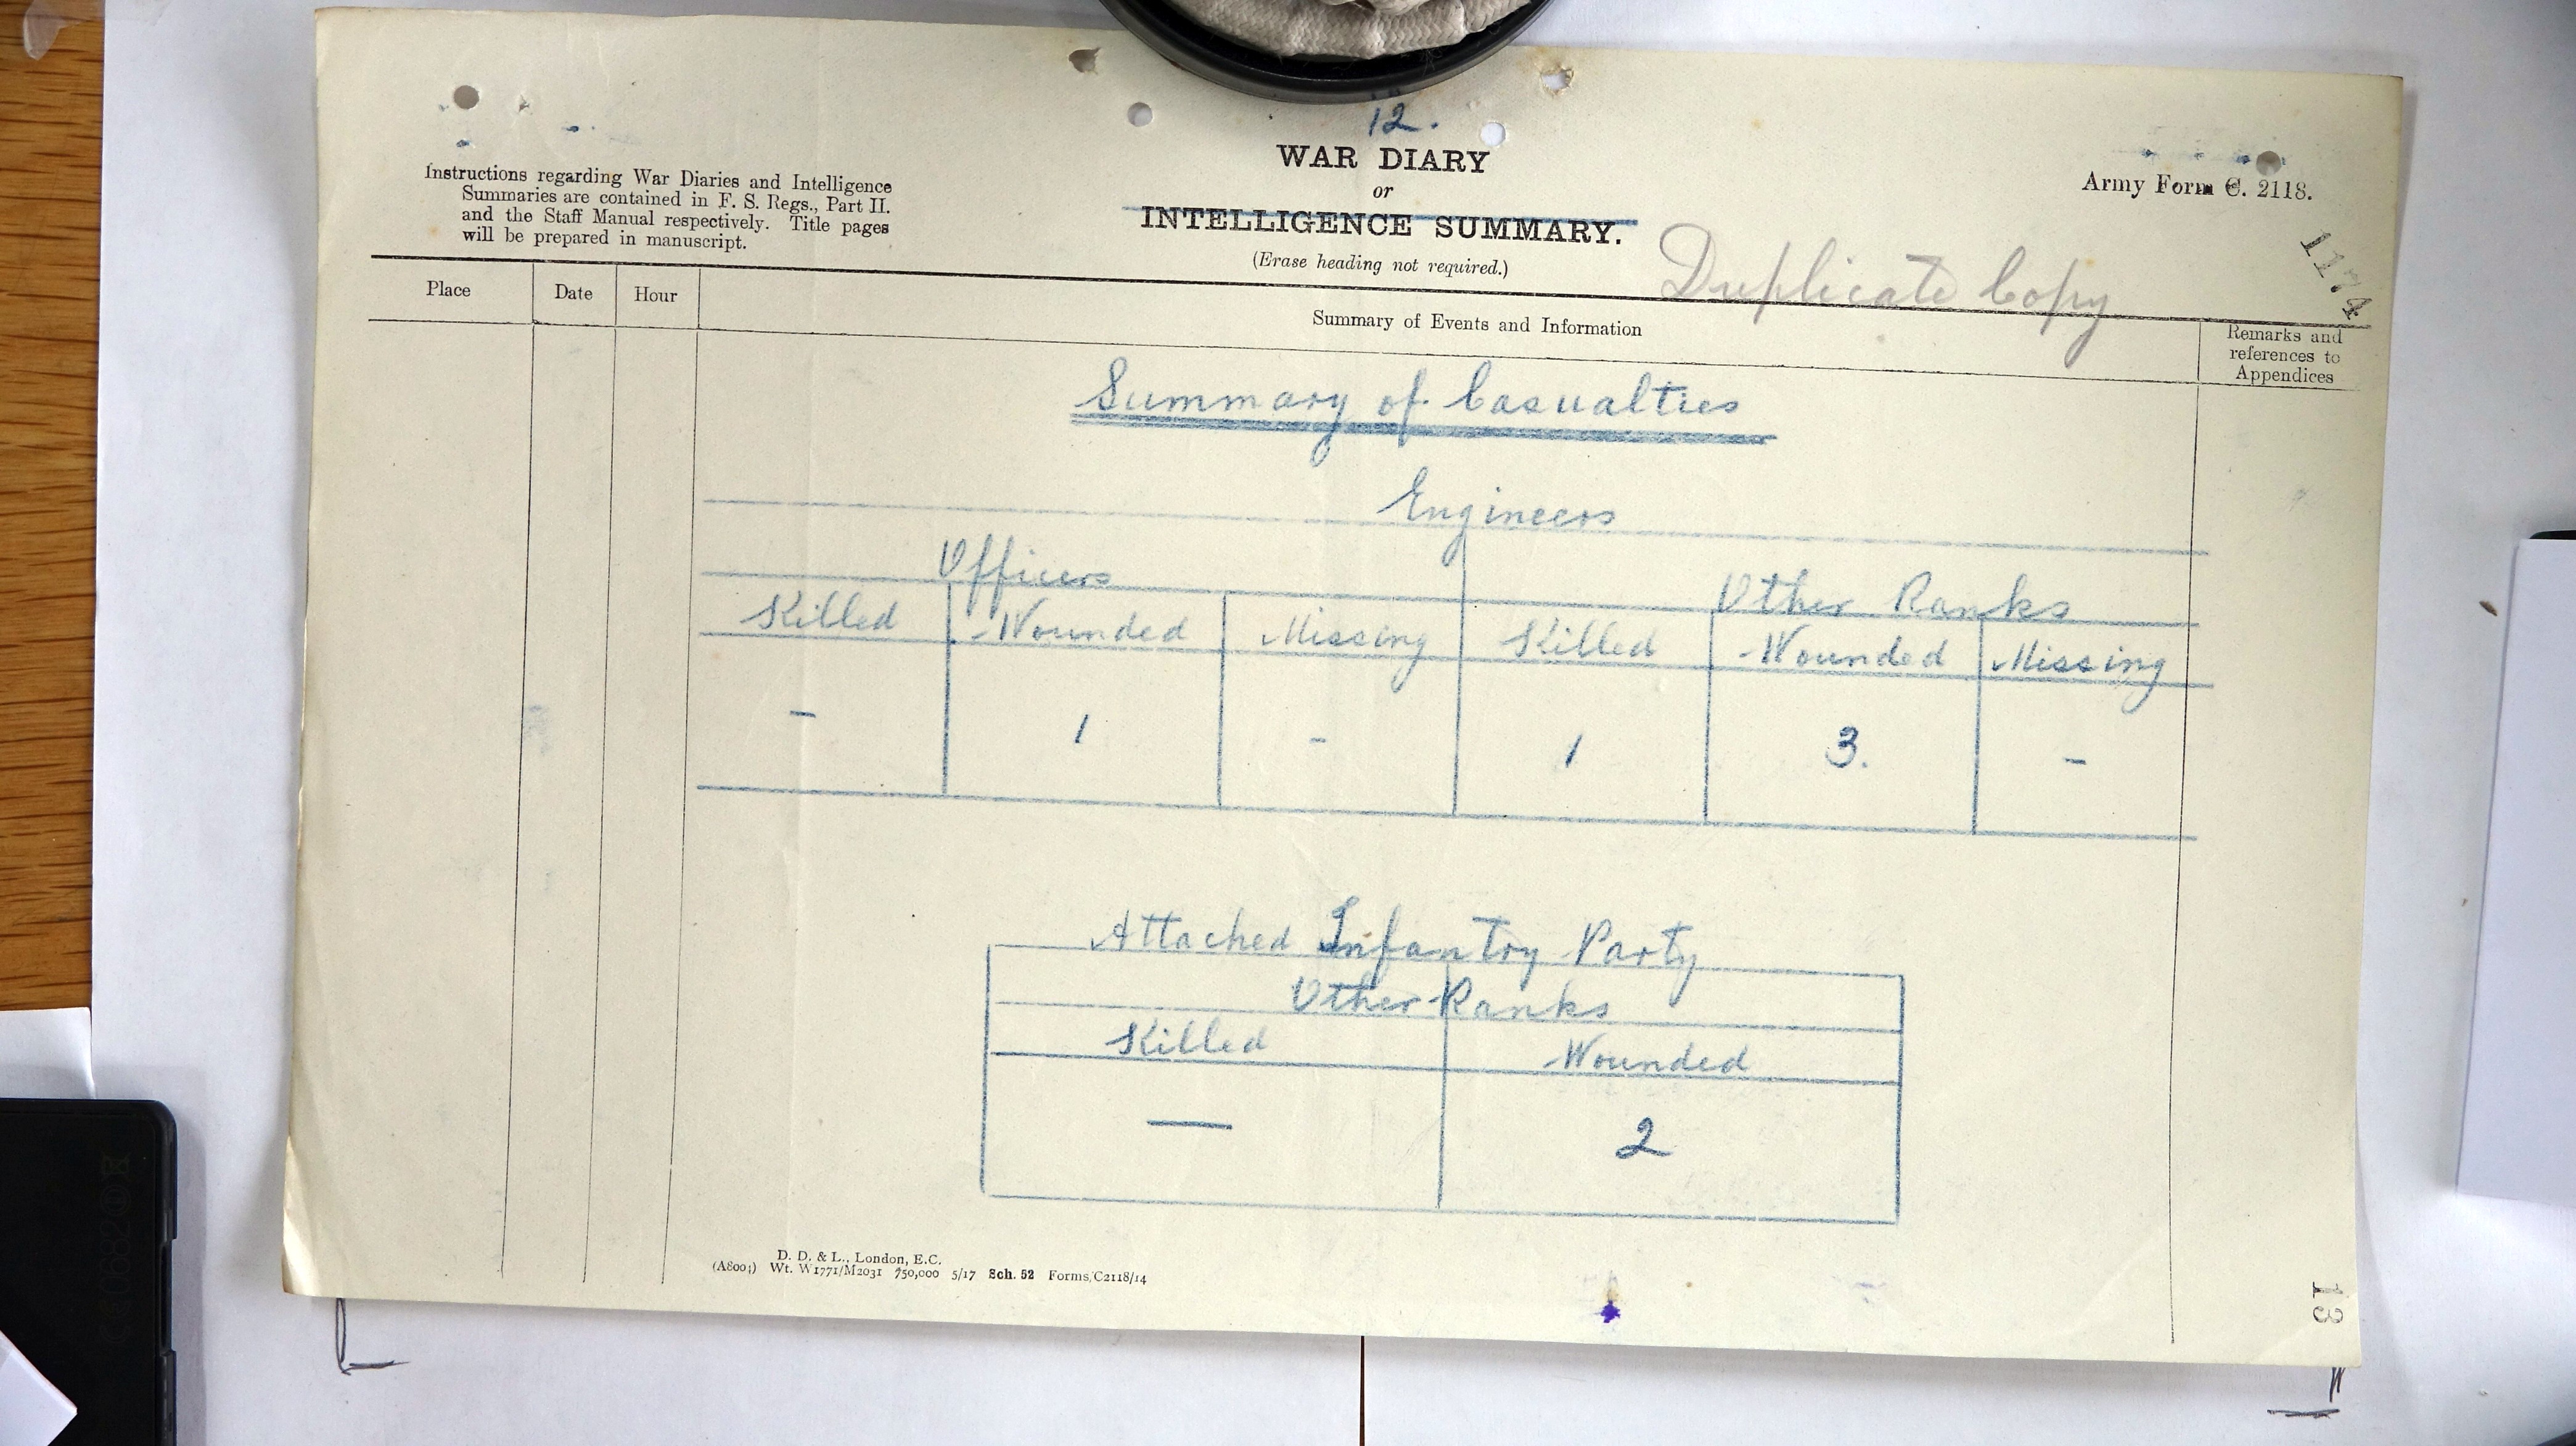 12.
WAR DIARY
or
INTELLIGENCE SUMMARY.
(Erase heading not required.)
Instructions regarding War Diaries and Intelligence
Summaries are contained in F. S. Regs., Part II.
and the Staff Manual respectively. Title pages
will be prepared in manuscript.
Army Form C. 2118.
Duplicate Copy
1174
Place Date Hour Summary of Events and Information Remarks and
references to
Appendices
Summary of Casualties
Engineers
Officers Other Ranks
Killed Wounded Missing Killed Wounded Missing
- 1 - 1 3. -
Attached Infantry Party
Other Ranks
Killed Wounded
— 2
D. D. & L., London, E.C.
(A8004) Wt. W1771/M2031 750,000 5/17 Sch. 52 Forms/C2118/14
13